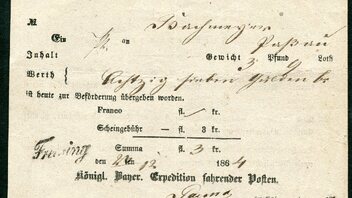 №
Ein on Bachmeyer
Inhalt Gewicht Pfund Loth Passau
Werth Achtzig sieben Gulden kr
ist heute zur Beförderung übergeben worden.
Franco fl. kr.
Scheingebühr — fl. 3 kr.
Summa fl. 3 kr.
Freising
den 24 12 1864
Königl. Bayer. Expedition fahrender Posten.